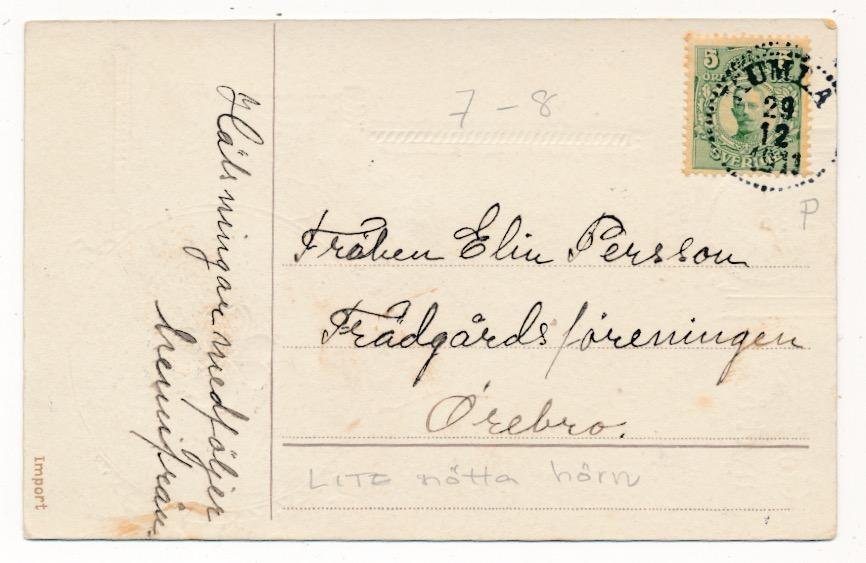 7-8
5
ÖRE
SVERIGE
KUMLA
29
12
1911
P
Fröken Elin Persson
Trädgårdsföreningen
Örebro.
LITE nötta hörn
Hälsningar medföljer
hemifrån.
Import